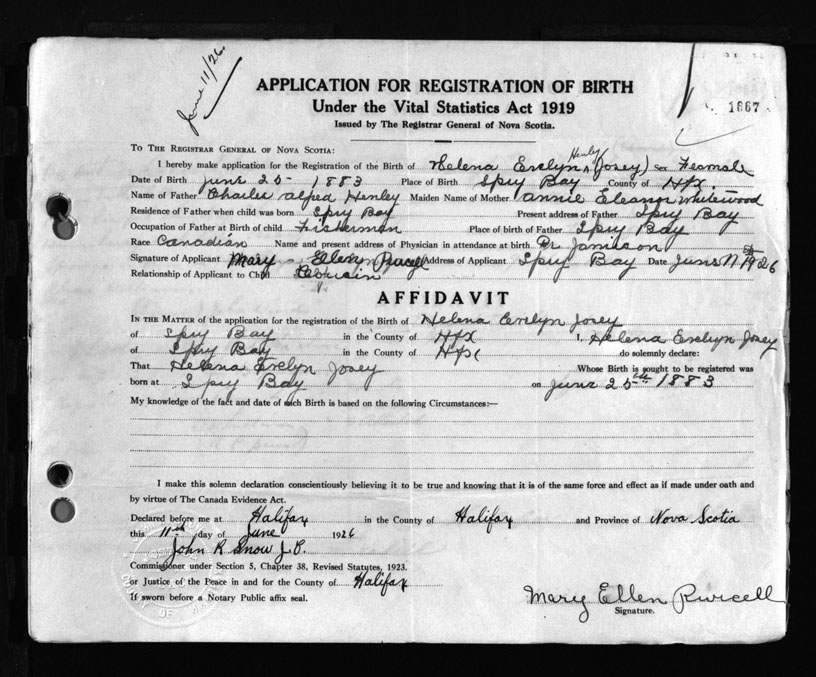 June 11/26.
APPLICATION FOR REGISTRATION OF BIRTH
Under the Vital Statistics Act 1919
1667
Issued by The Registrar General of Nova Scotia.
TO THE REGISTRAR GENERAL OF NOVA SCOTIA:
Henley
I hereby make application for the Registration of the Birth of Helena Evelyn (Josey) Sex Female
Date of Birth June 25 - 1883 Place of Birth Spry Bay County of Hfx.
Name of Father Charles Alfred Henley Maiden Name of Mother Annie Eleanor Whitewood
Residence of Father when child was born Spry Bay Present address of Father Spry Bay
Occupation of Father at Birth of child Fisherman Place of birth of Father Spry Bay
Race Canadian Name and present address of Physician in attendance at birth Dr Jamieson
Signature of Applicant Mary Ellen Purcell Address of Applicant Spry Bay Date June 11th 1926
Relationship of Applicant to Child
AFFIDAVIT
IN THE MATTER of the application for the registration of the Birth of Helena Evelyn Josey
of Spry Bay in the County of Hfx I, Helena Evelyn Josey
of Spry Bay in the County of Hfx do solemnly declare:
That Helena Evelyn Josey Whose Birth is sought to be registered was
born at Spry Bay on June 25th 1883
My knowledge of the fact and date of such Birth is based on the following Circumstances:—
I make this solemn declaration conscientiously believing it to be true and knowing that it is of the same force and effect as if made under oath and
by virtue of The Canada Evidence Act.
Declared before me at Halifax in the County of Halifax and Province of Nova Scotia
this 11th day of June 1926
John R Snow J.P.
Commissioner under Section 5, Chapter 38, Revised Statutes, 1923.
or Justice of the Peace in and for the County of Halifax
If sworn before a Notary Public affix seal.
Mary Ellen Purcell
Signature.